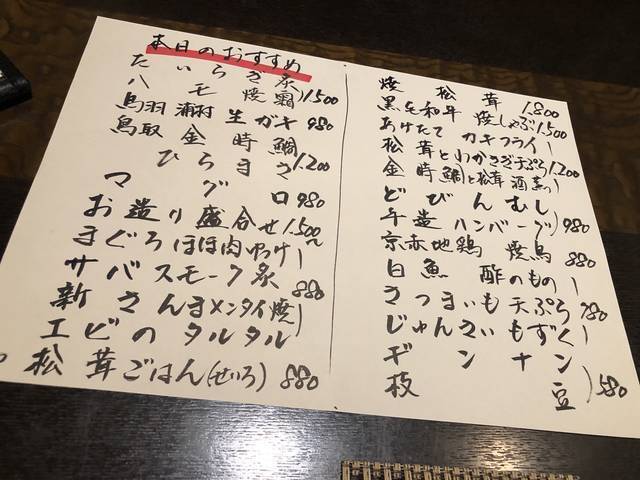 本日のおすすめ
たいらぎ炙
ハモ焼霜)1,500
鳥羽浦村生ガキ 980
鳥取金時鯛
ひらまさ)1,200
マグロ 980
お造り盛合せ 1,500〜
まぐろほほ肉ゆっけ
サバスモーク炙
新さんまメンタイ焼
エビのタルタル)880
松茸ごはん(せいろ) 880
焼松茸 1,800
黒毛和牛焼しゃぶ 1,500
あげたてカキフライ
松茸とわかさぎ天ぷら)1,200
金時鯛と松茸酒蒸し
どびんむし
手造ハンバーグ)980
京赤地鶏焼鳥 880
白魚酢のもの
さつまいも天ぷら
じゅんさいもずく)780
ギンナン
枝豆)580